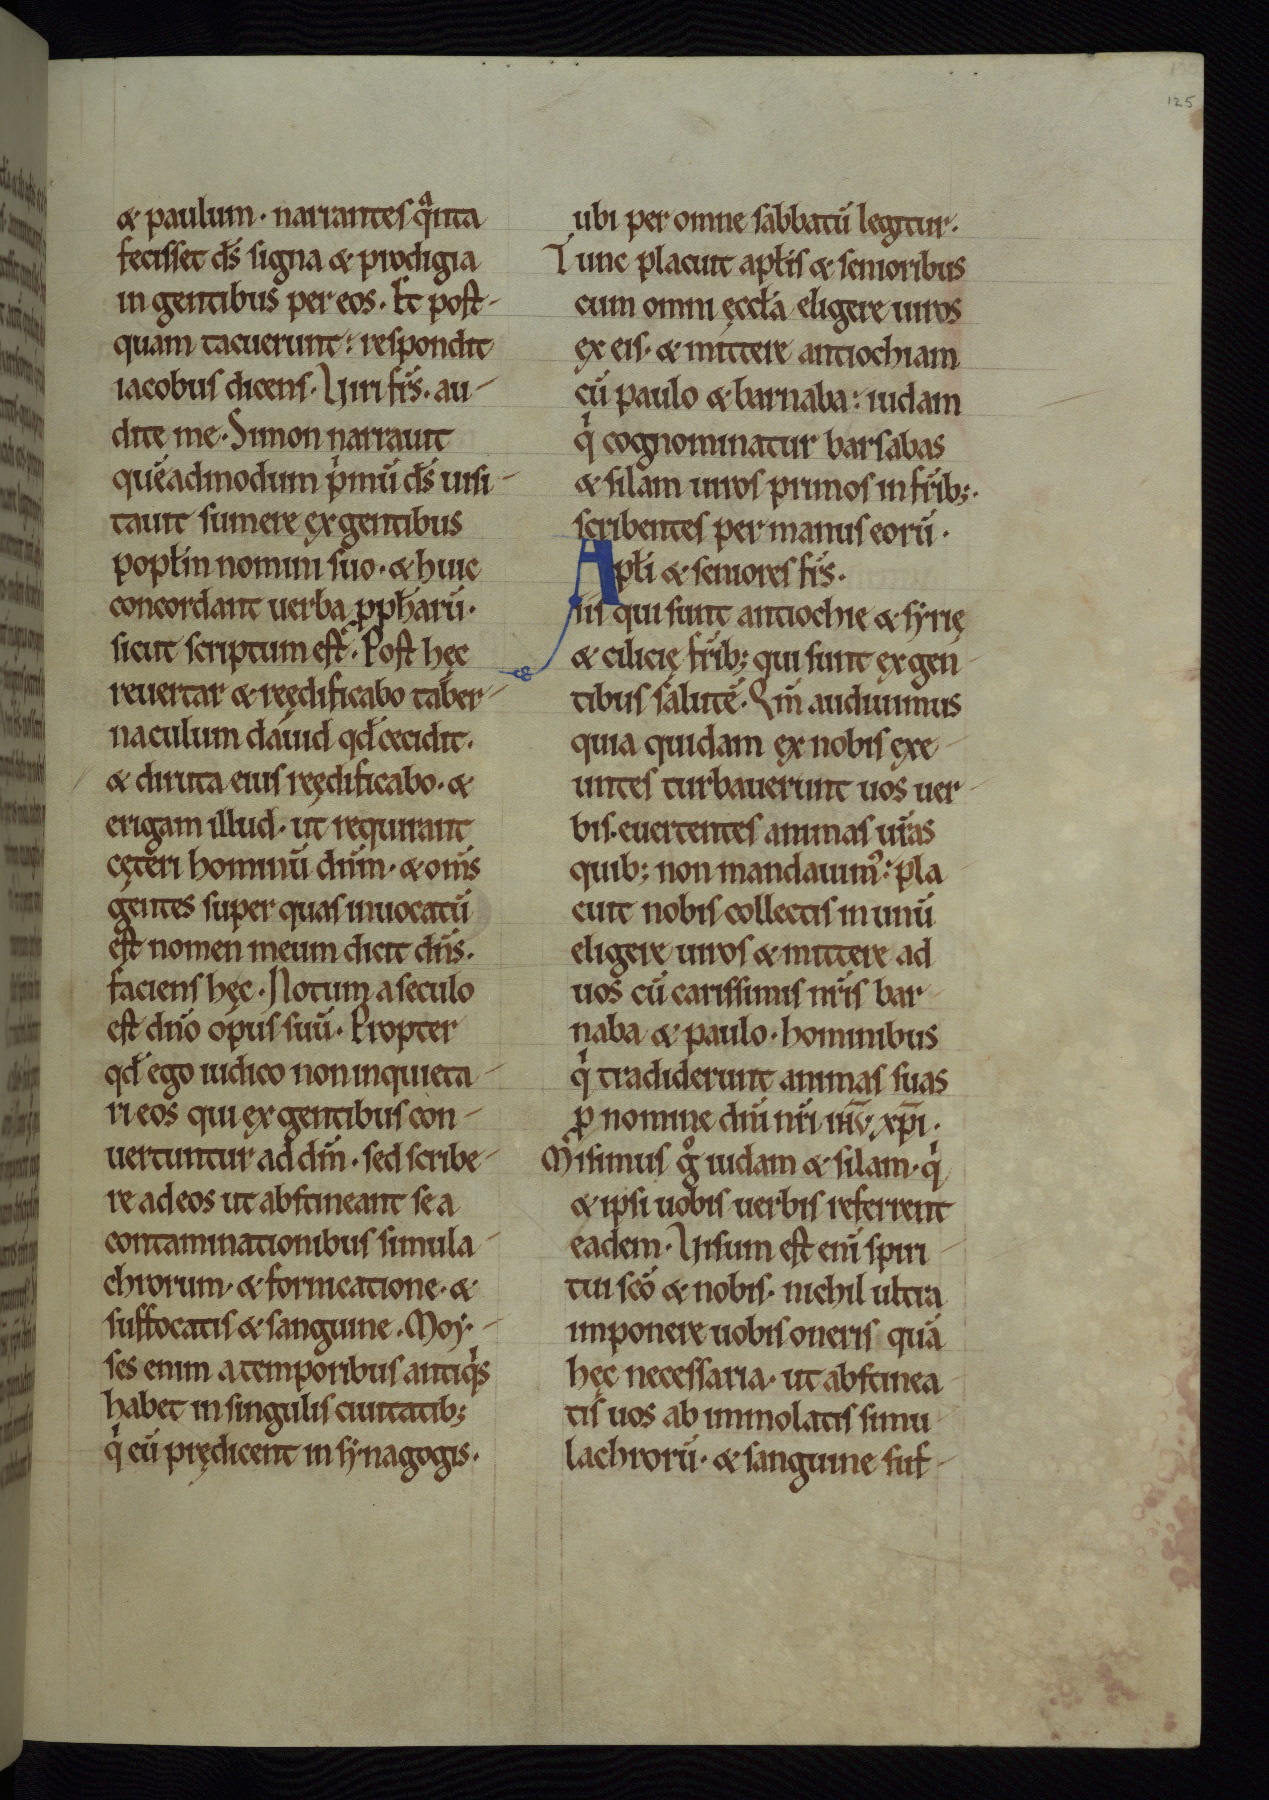 125
& paulum · narrantes qᵃnta
fecisset d̄s signa & prodigia
in gentibus per eos . Et post-
quam tacuerunt : respondit
iacobus dicens · Viri fr̄s . au-
dite me · Simon narrauit
quēadmodum pⁱmū d̄s uisi-
tauit sumere ex gentibus
popłm nomini suo · & huic
concordant uerba ꝓpħarū ·
sicut scriptum est . Post hęc
reuertar & reędificabo taber-
naculum dauid qd̄ cecidit .
& diruta eius reędificabo · &
erigam illud · ut requirant
cęteri hominū dn̄m · & om̄s
gentes super quas inuocatū
est nomen meum dicit dn̄s .
faciens hęc · Notum a seculo
est dn̄o opus suū · Propter
qd̄ ego iudico non inquieta-
ri eos qui ex gentibus con-
uertuntur ad dm̄ · sed scribe-
re ad eos ut abstineant se a
contaminationibus simula-
chrorum · & fornicatione · &
suffocatis & sanguine . Moy-
ses enim a temporibus antiqⁱs
habet in singulis ciuitatib;
qⁱ eū prędicent in synagogis .
ubi per omne sabbatū legitur .
Tunc placuit apłis & senioribus
cum omni ęccła eligere uiros
ex eis · & mittere antiochiam
cū paulo & barnaba : iudam
qⁱ cognominatur barsabas
& silam uiros primos in fr̄ib; .
scribentes per manus eorū ·
Apłi & seniores fr̄s .
iis qui sunt antiochie & syrię
& cilicię fr̄ib; qui sunt ex gen-
tibus salutē . Qm̄ audiuimus
quia quidam ex nobis exe-
untes turbauerunt uos uer-
bis . euertentes animas ur̄as
quib; non mandauimꝰ : pla
cuit nobis collectis in unū
eligere uiros & mittere ad
uos cū carissimis nr̄is bar-
naba & paulo · hominibus
qⁱ tradiderunt animas suas
ꝓ nomine dn̄i nr̄i ih̄u xp̄i .
Misimus gᵒ iudam & silam · qⁱ
& ipsi uobis uerbis referrent
eadem · Visum est eni̅ spiri-
tui sc̄o & nobis · nichil ultra
imponere uobis oneris quā
hęc necessaria · ut abstinea-
tis uos ab immolatis simu-
lachrorū · & sanguine suf-